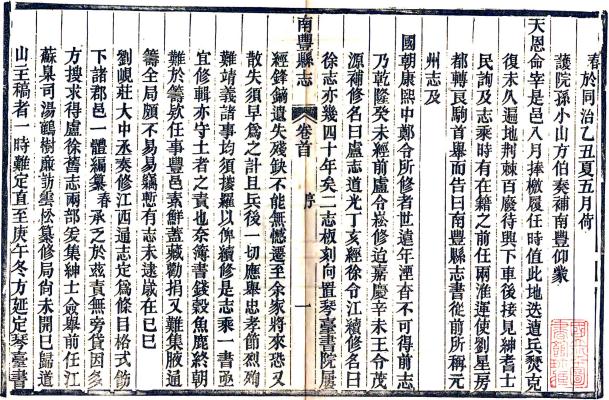 春於同治乙丑夏五月荷
護院孫小山方伯奏補南豐仰蒙
天恩命宰是邑八月捧檄履任時值此地迭遭兵燹克
復未久遍地荆棘百廢待興下車後接見紳耆士
民詢及志乘時有在籍之前任兩淮運使劉星房
都轉良駒首舉而告曰南豐縣志書從前所稱元
州志及
國朝康熙中鄭令所修者世遠年湮杳不可得前志
乃乾隆癸未經前盧令崧修迨嘉慶辛未王令茂
源補修名曰盧志道光丁亥經徐令江續修名曰
徐志亦幾四十年矣二志板刻向置琴臺書院屢
南豐縣志
卷首
序
一
經鋒鏑遺失殘缺不能無憾遷至余家將來恐又
散失須早為之計且兵後一切應舉忠孝節烈殉
難靖義諸事均須搜羅以俾續修是志乘一書亟
宜修輯亦守土者之責也奈簿書錢穀魚鹿終朝
難於籌欵任事豐邑素鮮蓋藏勸捐又難集腋通
籌全局頗不易易竊暫有志未逮嵗在己巳
劉峴莊大中丞奏修江西通志定為條目格式飭
下諸郡邑一體編纂春承乏於兹責無旁貸因多
方搜求得盧徐舊志兩部爰集紳士僉舉前任江
蘇臬司湯鶴樹廉訪雲松纂修局尚未開已歸道
山主稿者一時難定直至庚午冬方延定琴臺書